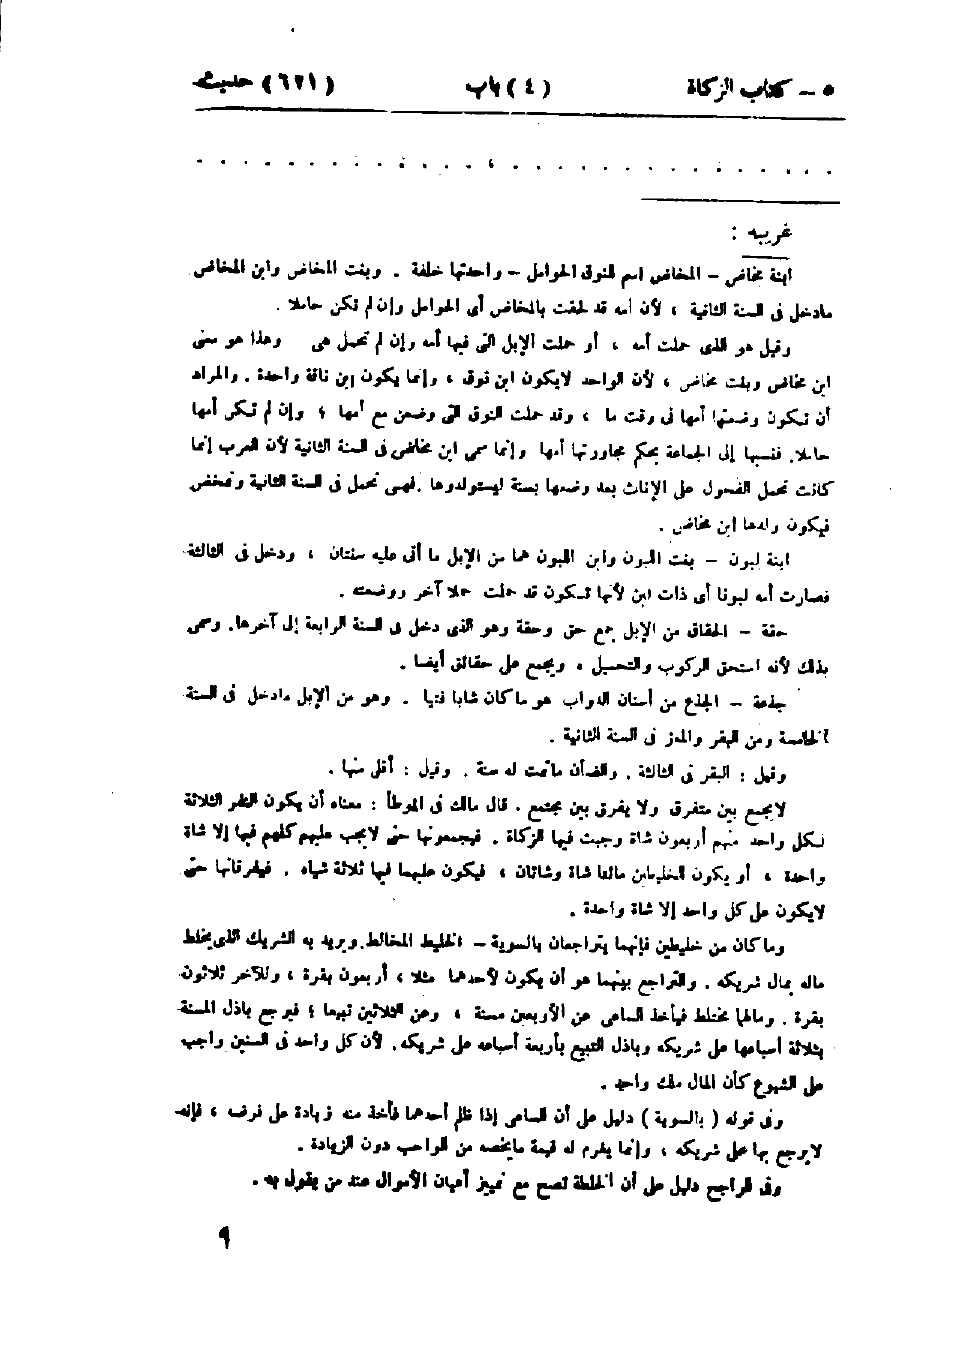 ٥ - كتاب الزكاة (٤) باب (٦٢١) حديث
غريبه :
ابنة مخاض - المخاض اسم للنوق الحوامل - واحدتها خلفة . وبنت المخاض وابن المخاض
مادخل فى السنة الثانية ، لأن أمه قد لحقت بالمخاض أى الحوامل وإن لم تكن حاملا .
وقيل هو الذى حملت أمه ، أو حملت الإبل التى فيها أمه وإن لم تحمل هى وهذا هو معنى
ابن مخاض وبنت مخاض ، لأن الواحد لايكون ابن نوق ، وإنما يكون ابن ناقة واحدة . والمراد
أن تكون وضعتها أمها فى وقت ما ، وقد حملت النوق التى وضعن مع أمها ؛ وإن لم تكن أمها
حاملا. فنسبها إلى الجماعة بحكم مجاورتها أمها وإنما سمى ابن مخاض فى السنة الثانية لأن العرب إنما
كانت تحمل الفحول على الإناث بعد وضعها بسنة ليستولدوها .فهى تحمل فى السنة الثانية وتمخض
فيكون ولدها ابن مخاض .
ابنة لبون - بنت اللبون وابن اللبون هما من الإبل ما أتى عليه سنتان ، ودخل فى الثالثة
فصارت أمه لبونا أى ذات لبن لأنها تكون قد حملت حملا آخر ووضعته .
حقة - الحقاق من الإبل جمع حق وحقة وهو الذى دخل فى السنة الرابعة إلى آخرها. وسمى
بذلك لأنه استحق الركوب والتحميل ، ويجمع على حقائق أيضا .
جذعة - الجذع من أسنان الدواب هو ما كان شابا فتيا . وهو من الإبل مادخل فى السنة
الخامسة ومن البقر والمعز فى السنة الثانية .
وقيل : البقر فى الثالثة . والضأن ماتمت له سنة . وقيل : أقل منها .
لايجمع بين متفرق ولا يفرق بين مجتمع . قال مالك فى الموطأ : معناه أن يكون النفر الثلاثة
لكل واحد منهم أربعون شاة وجبت فيها الزكاة . فيجمعونها حتى لايجب عليهم كلهم فيها إلا شاة
واحدة ، أو يكون الخليطين مائتا شاة وشاتان ، فيكون عليهما فيها ثلاثة شياه . فيفرقانها حتى
لايكون على كل واحد إلا شاة واحدة .
وما كان من خليطين فإنهما يتراجعان بالسوية - الخليط المخالط. ويريد به الشريك الذى يخلط
ماله بمال شريكه . والتراجع بينهما هو أن يكون لأحدهما مثلا ، أربعون بقرة ، وللآخر ثلاثون
بقرة . ومالهما مختلط فيأخذ الساعى عن الأربعين مسنة ، وعن الثلاثين تبيعا ؛ فيرجع باذل المسنة
بثلاثة أسباعها على شريكه وباذل التبيع بأربعة أسباعه على شريكه. لأن كل واحد فى السنين واجب
على الشيوع كأن المال ملك واحد .
وفى قوله ( بالسوية ) دليل على أن الساعى إذا ظلم أحدهما فأخذ منه زيادة على فرضه ، فإنه
لايرجع بها على شريكه ، وإنما يغرم له قيمة مايخصه من الواجب دون الزيادة .
وفى التراجع دليل على أن الخلطة تصح مع تمييز أعيان الأموال عند من يقول به .
٩